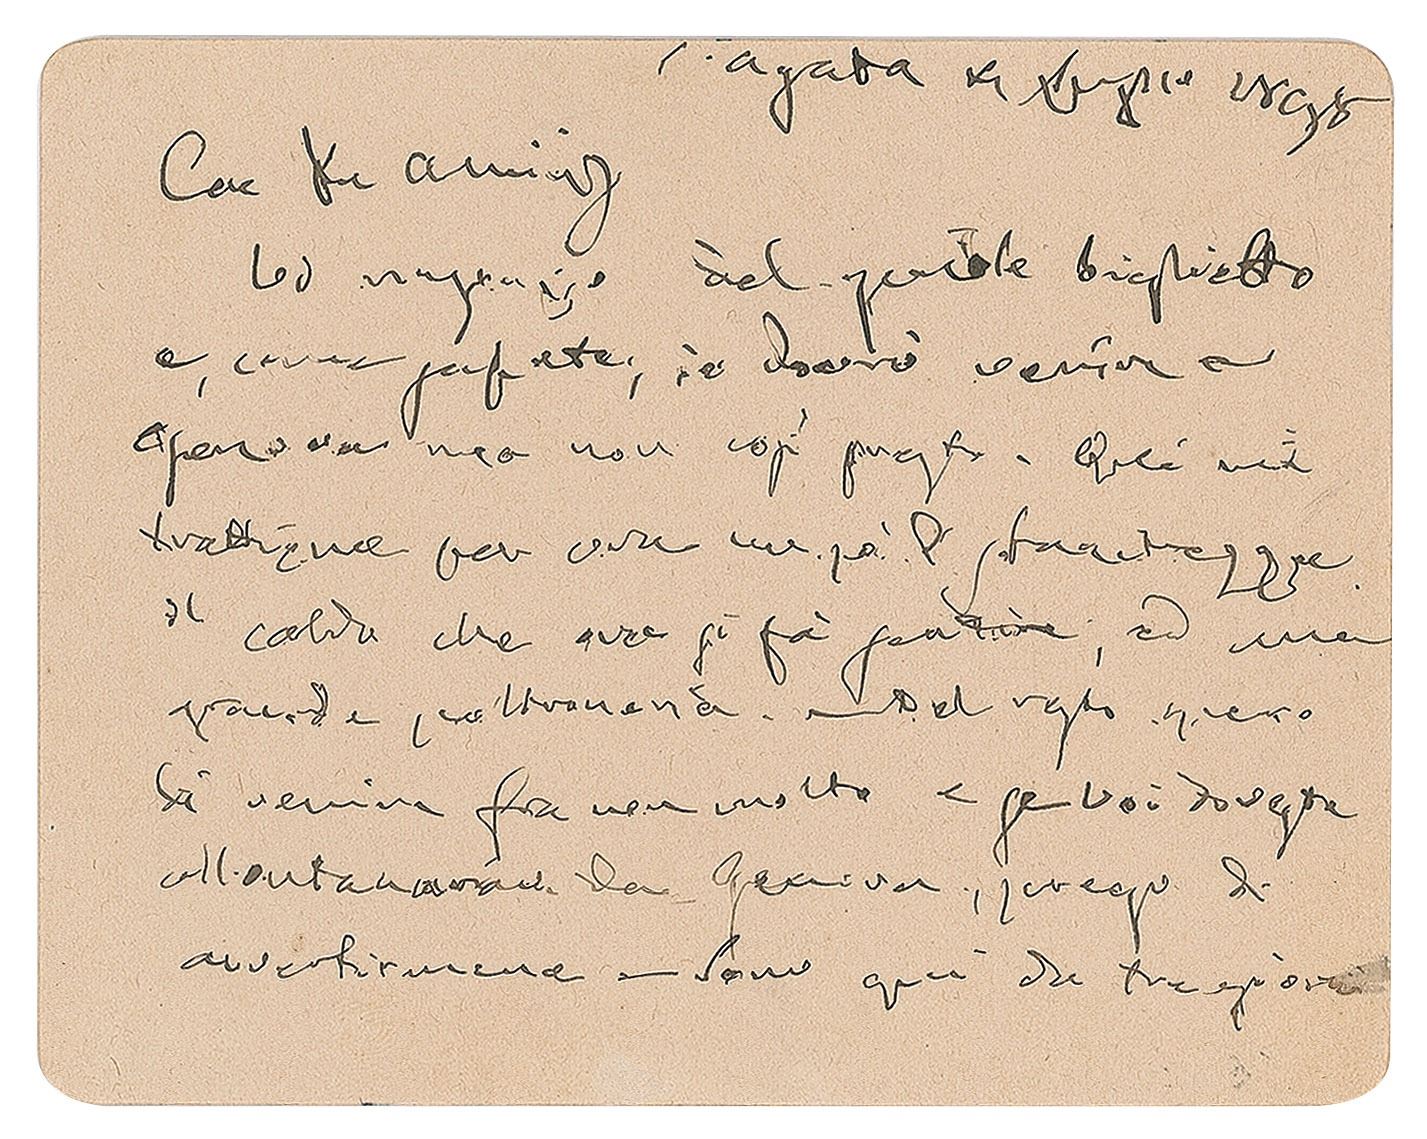 S. Agata Luglio 1898
Car amico
Vi ringrazio del gentile biglietto
e, come sapete, io dovrò venire a
Genova ma non così presto. Qui mi
trattiene per ora un pò l'
il caldo che ora si fà sentire, ed una
grande poltroneria. — Del resto spero
di venire fra non molto e se Voi doveste
allontanarvi da Genova, prego di
avvertirmene — Sono qui da tre giorni